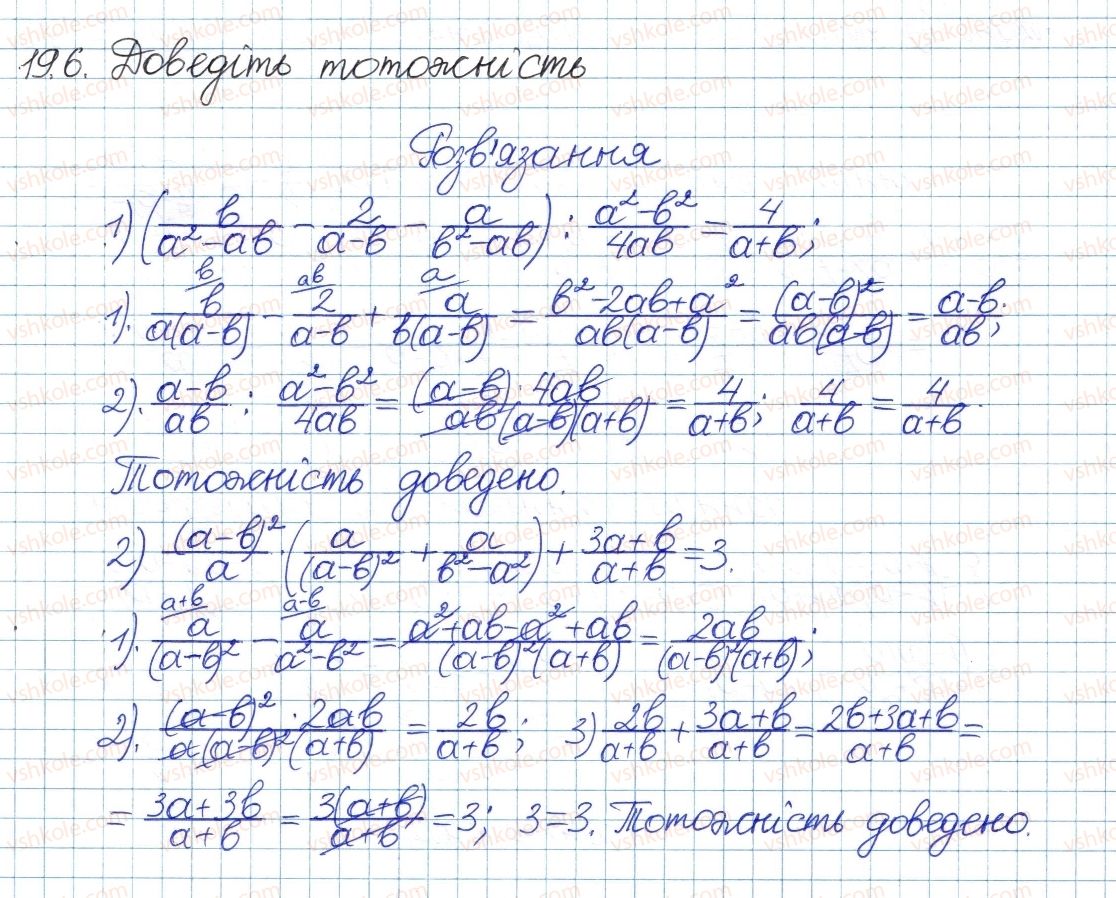 19.6. Доведіть тотожність
Розв'язання
1) (b/(a²-ab) - 2/(a-b) - a/(b²-ab)) : (a²-b²)/(4ab) = 4/(a+b);
1). b/ b/(a(a-b)) - ab/ 2/(a-b) + a/ a/(b(a-b)) = (b²-2ab+a²)/(ab(a-b)) = (a-b)²/(ab(a-b)) = (a-b)/(ab);
2). (a-b)/(ab) : (a²-b²)/(4ab) = ((a-b)·4ab)/(ab(a-b)(a+b)) = 4/(a+b); 4/(a+b) = 4/(a+b).
Тотожність доведено.
2) (a-b)²/a · (a/(a-b)² + a/(b²-a²)) + (3a+b)/(a+b) = 3.
1). a+b/ a/(a-b)² - a-b/ a/(a²-b²) = (a²+ab-a²+ab)/((a-b)²(a+b)) = 2ab/((a-b)²(a+b));
2). ((a-b)²·2ab)/(a(a-b)²(a+b)) = 2b/(a+b); 3) 2b/(a+b) + (3a+b)/(a+b) = (2b+3a+b)/(a+b) =
= (3a+3b)/(a+b) = 3(a+b)/(a+b) = 3; 3=3. Тотожність доведено.